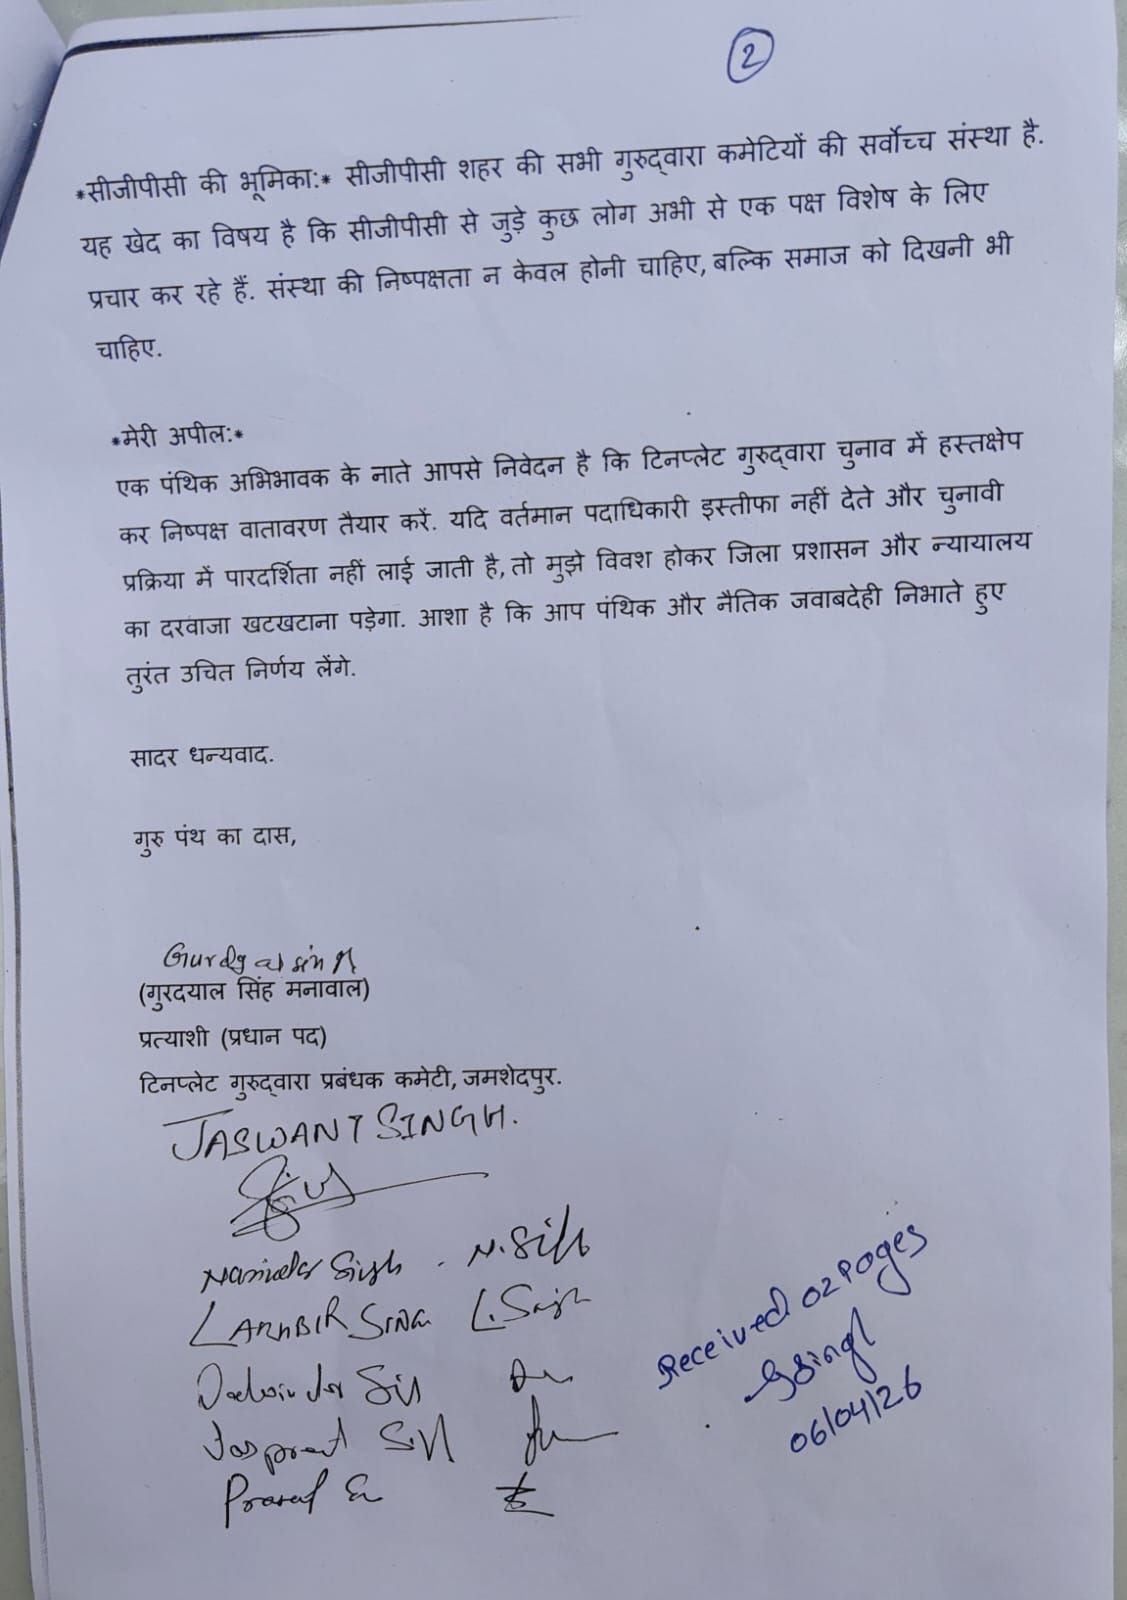 2
*सीजीपीसी की भूमिका:* सीजीपीसी शहर की सभी गुरुद्वारा कमेटियों की सर्वोच्च संस्था है.
यह खेद का विषय है कि सीजीपीसी से जुड़े कुछ लोग अभी से एक पक्ष विशेष के लिए
प्रचार कर रहे हैं. संस्था की निष्पक्षता न केवल होनी चाहिए, बल्कि समाज को दिखनी भी
चाहिए.
*मेरी अपील:*
एक पंथिक अभिभावक के नाते आपसे निवेदन है कि टिनप्लेट गुरुद्वारा चुनाव में हस्तक्षेप
कर निष्पक्ष वातावरण तैयार करें. यदि वर्तमान पदाधिकारी इस्तीफा नहीं देते और चुनावी
प्रक्रिया में पारदर्शिता नहीं लाई जाती है, तो मुझे विवश होकर जिला प्रशासन और न्यायालय
का दरवाजा खटखटाना पड़ेगा. आशा है कि आप पंथिक और नैतिक जवाबदेही निभाते हुए
तुरंत उचित निर्णय लेंगे.
सादर धन्यवाद.
गुरु पंथ का दास,
(गुरदयाल सिंह मनावाल)
प्रत्याशी (प्रधान पद)
टिनप्लेट गुरुद्वारा प्रबंधक कमेटी, जमशेदपुर.
JASWANT SINGH.
Singh . N. Singh
SINGH L. Singh
Received 02 Pages
06/04/26